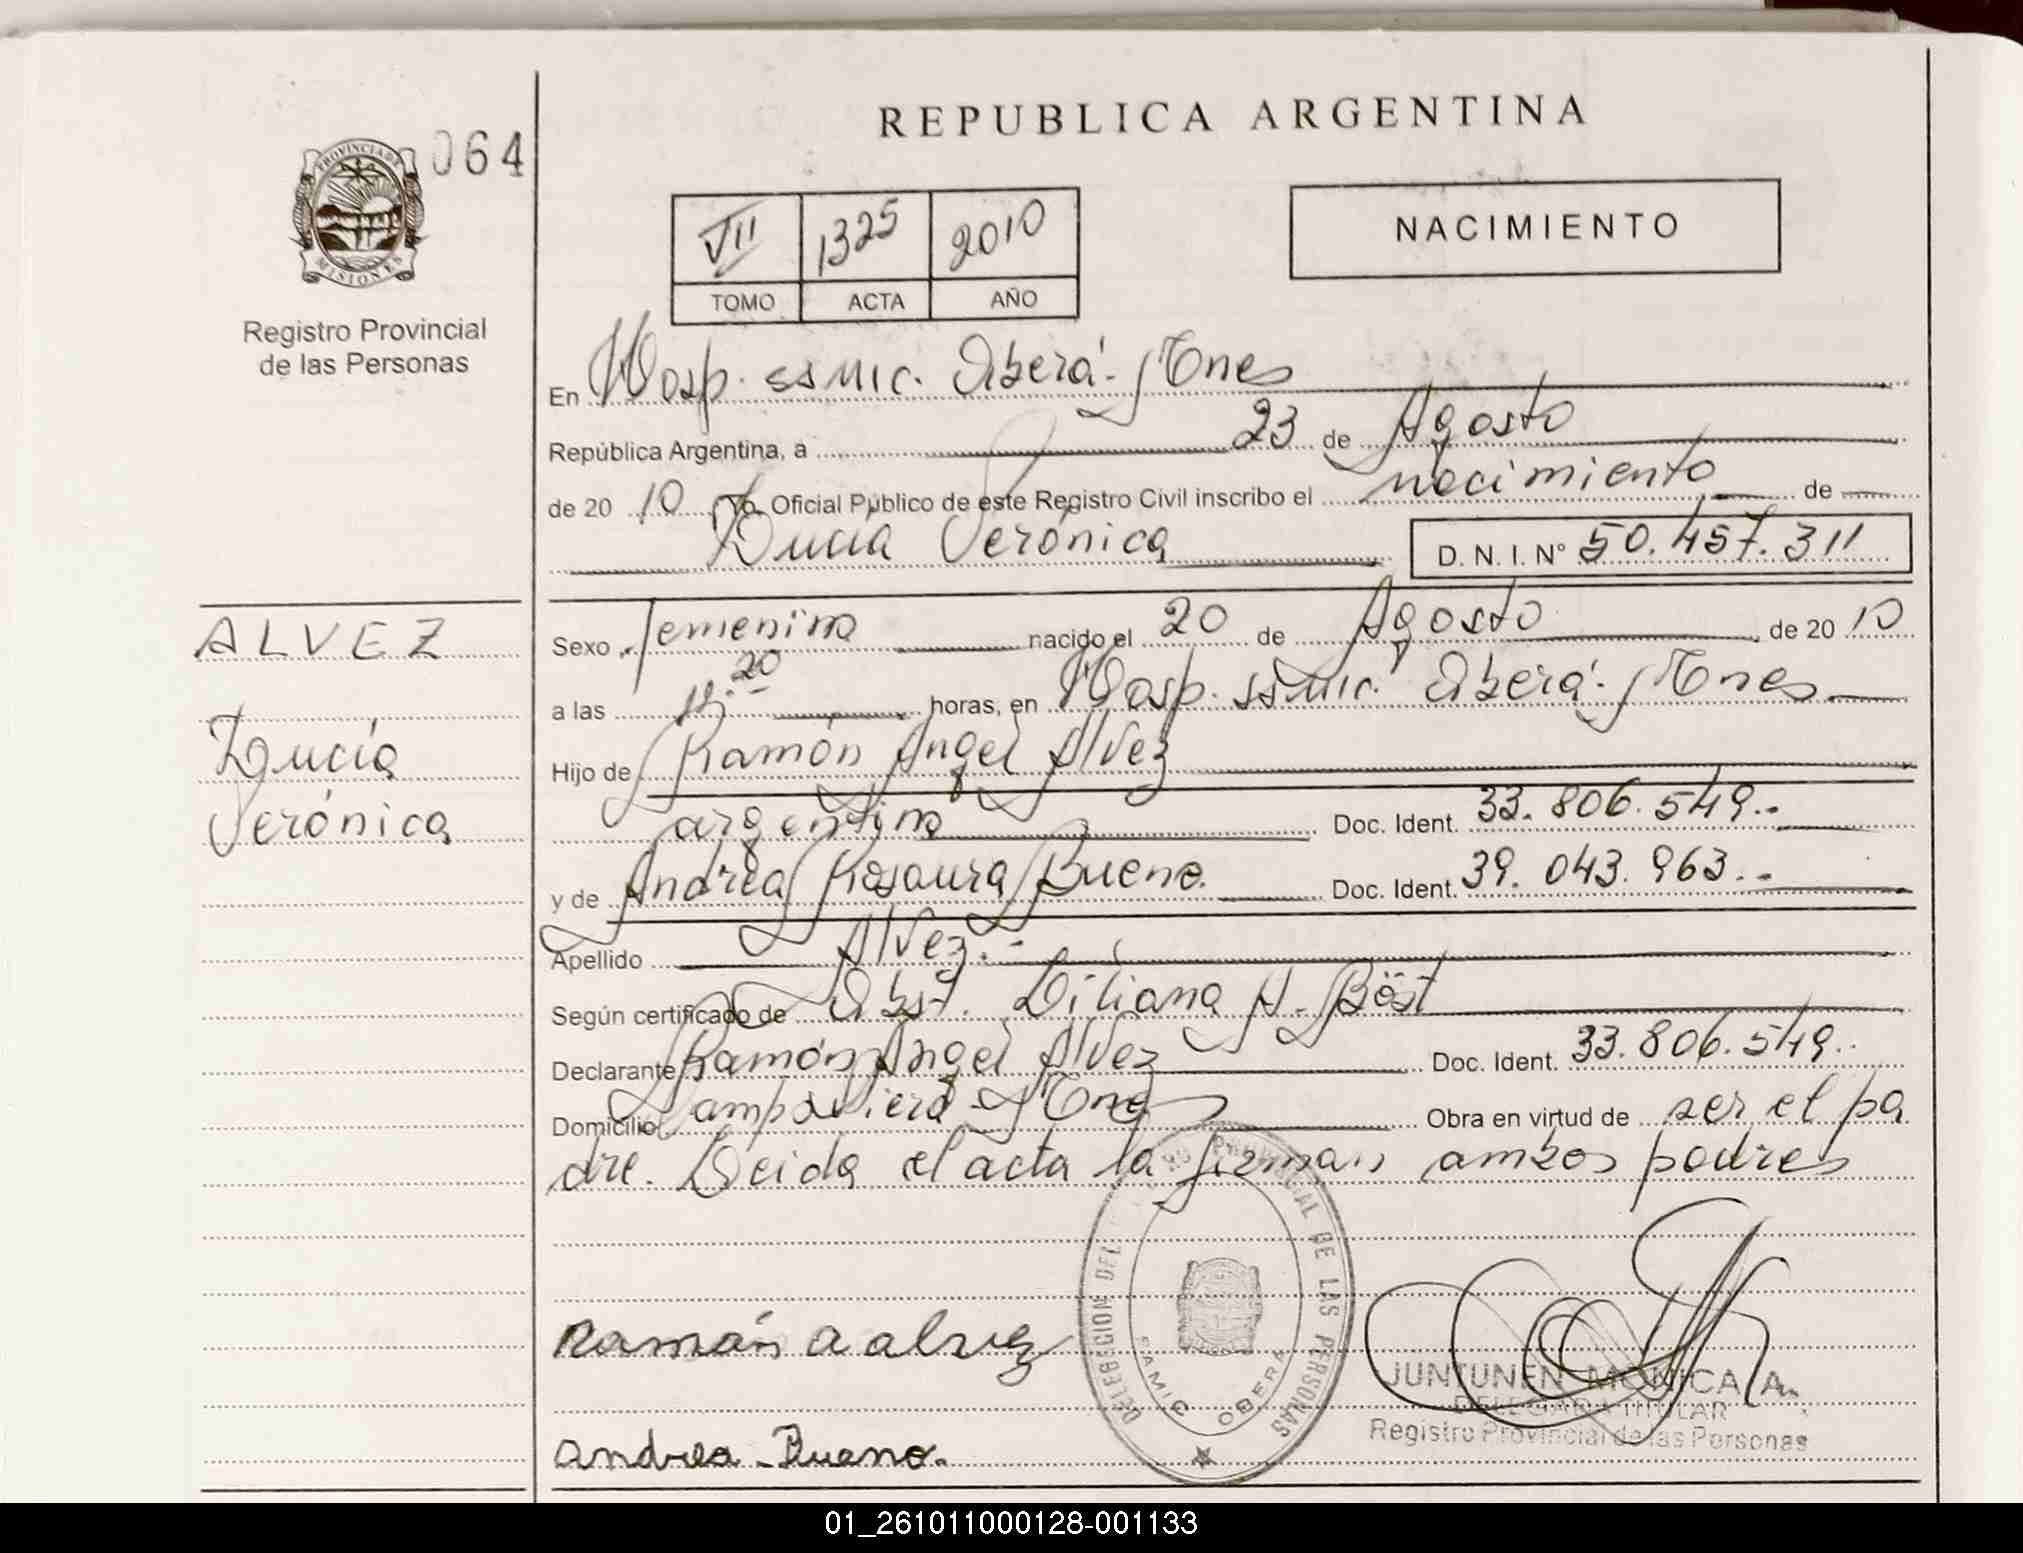 REPUBLICA ARGENTINA
PROVINCIA DE
MISIONES
064
Registro Provincial
de las Personas
VII 1325 2010
TOMO ACTA AÑO
NACIMIENTO
En Hosp. SSMIC. Oberá - Mnes
República Argentina, a 23 de Agosto
de 20 10 Yo Oficial Público de este Registro Civil inscribo el nacimiento de
Lucía Verónica D. N. I. Nº 50.457.311
ALVEZ
Lucía
Verónica
Sexo femenino nacido el 20 de Agosto de 20 10
a las 20 horas, en Hosp. SSMIC. Oberá - Mnes
Hijo de Ramón Angel Alvez
argentino Doc. Ident. 33.806.549.-
y de Andrea Rosaura Bueno. Doc. Ident. 39.043.963.-
Apellido Alvez.-
Según certificado de Obst. Liliana A. Böst
Declarante Ramón Angel Alvez Doc. Ident. 33.806.549.
Domicilio Campo Viera - Mnes Obra en virtud de ser el pa
dre. Leida el acta la firman ambos padres
DELEGACION DEL PROVINCIAL DE LAS PERSONAS
SAMIC OBERA
Ramón A alvez
Andrea Bueno.
JUNTUNEN MONICA A.
DELEGADA TITULAR
Registro Provincial de las Personas
01_261011000128-001133